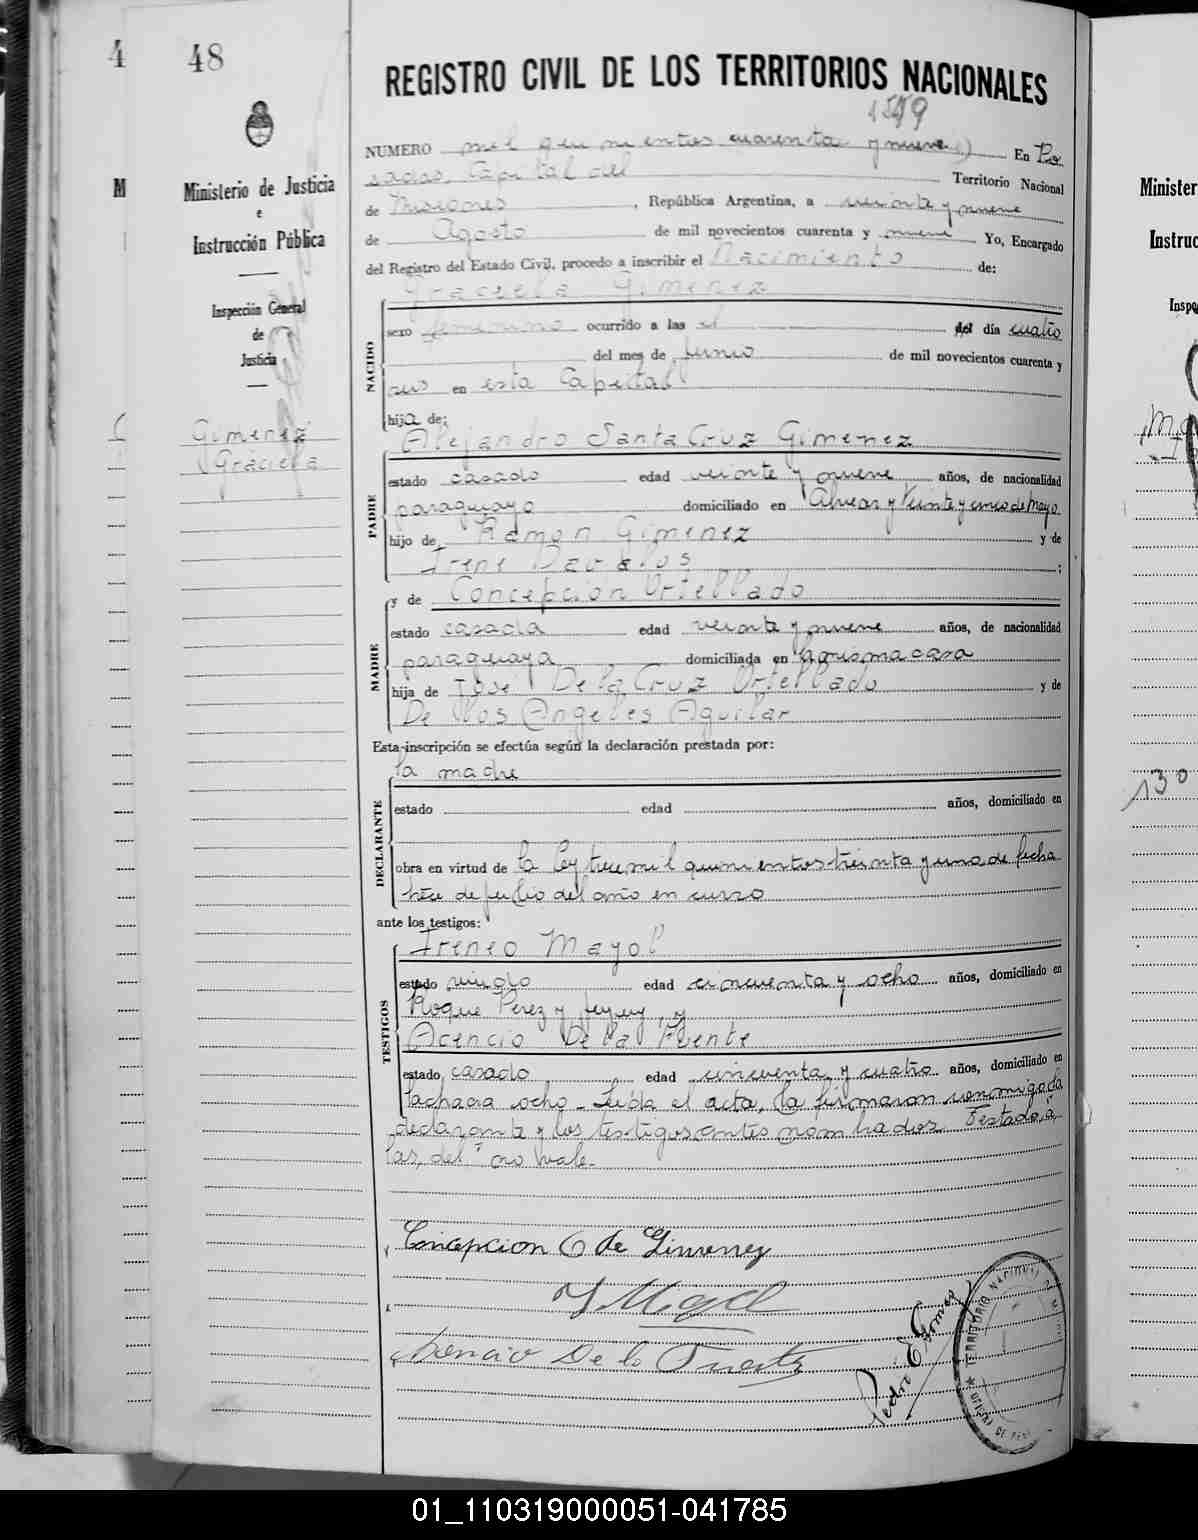 4
48
Ministerio de Justicia
e
Instrucción Pública
Inspección General
de
Justicia
Gimenez
Graciela
REGISTRO CIVIL DE LOS TERRITORIOS NACIONALES
1549
NUMERO mil quinientos cuarenta y nueve) En Po-
sadas, Capital del Territorio Nacional
de Misiones, República Argentina, a veinte y nueve
de Agosto de mil novecientos cuarenta y nueve Yo, Encargado
del Registro del Estado Civil, procedo a inscribir el Nacimiento de:
Graciela Gimenez
NACIDO
sexo femenino ocurrido a las el del día cuatro
del mes de junio de mil novecientos cuarenta y
seis en esta Capital
hija de:
Alejandro Santa Cruz Gimenez
PADRE
estado casado edad veinte y nueve años, de nacionalidad
paraguayo domiciliado en Alvear y Veinte y cinco de Mayo
hijo de Ramon Gimenez y de
Irene Davalos ;
y de Concepción Ortellado
MADRE
estado casada edad veinte y nueve años, de nacionalidad
paraguaya domiciliada en la misma casa
hija de José De la Cruz Ortellado y de
De los Angeles Aguilar
Esta inscripción se efectúa según la declaración prestada por:
la madre
DECLARANTE
estado edad años, domiciliado en
obra en virtud de la ley trece mil quinientos treinta y uno de fecha
trece de julio del año en curso
ante los testigos:
Ireneo Mayol
TESTIGOS
estado viudo edad cincuenta y ocho años, domiciliado en
Roque Perez y Jujuy, y
Acencio De la Fuente
estado casado edad cincuenta y cuatro años, domiciliado en
la chacra ocho - Leida el acta, la firmaron conmigo la
declarante y los testigos antes nombrados. Testado, "a
las, del" no vale.-
Concepcion O de Gimenez
Y Mayol
Acencio De la Fuente
Pedro E Gomez
TERRITORIO NACIONAL D
Minister
Instruc
Inspe
13º
01_110319000051-041785